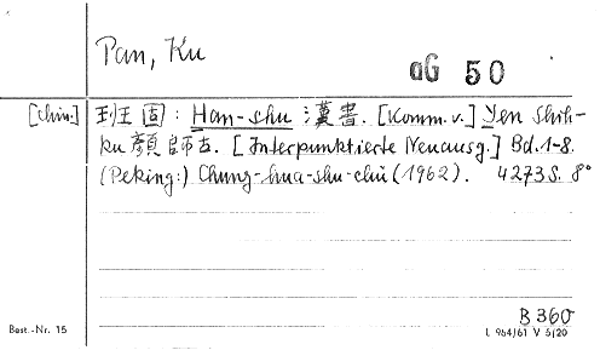 Pan, Ku
aG 50
[chin.] 班固: Han-shu 漢書. [Komm. v.] Yen Shih-
ku 顏師古. [Interpunktierte Neuausg.] Bd. 1-8.
(Peking:) Chung-hua-shu-chü (1962). 4273 S. 8°
B 360
Best.-Nr. 15
L 964/61 V 5/20